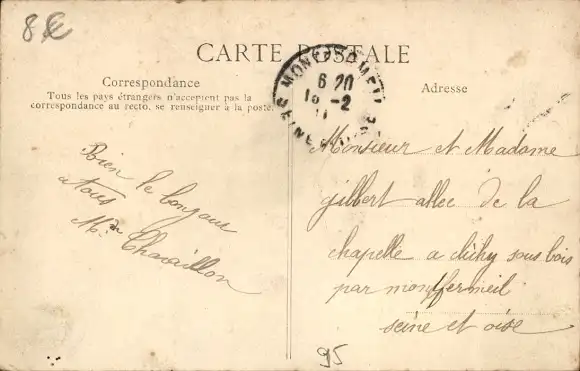 8€
CARTE POSTALE
Correspondance
Tous les pays étrangers n'acceptent pas la
correspondance au recto, se renseigner à la poste.
Adresse
6 20
18 -2
Bien le bonjour
a tous
Mme Chavaillon
Monsieur et Madame
gilbert allee de la
chapelle a clichy sous bois
par montfermeil
seine et oise
95